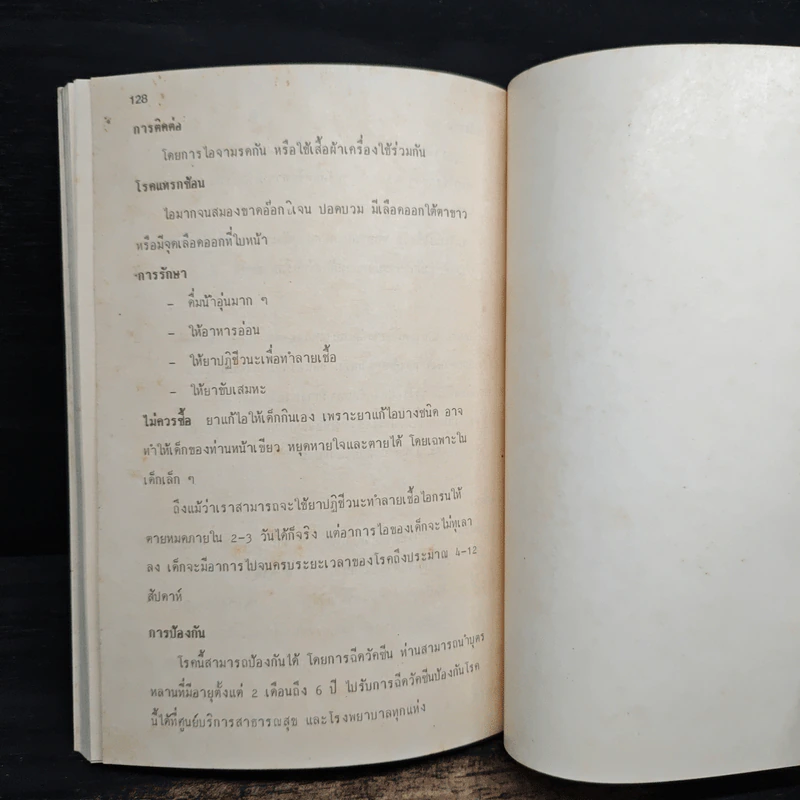 128
การติดต่อ
โดยการไอจามรดกัน หรือใช้เสื้อผ้าเครื่องใช้ร่วมกัน
โรคแทรกซ้อน
ไอมากจนสมองขาดอ๊อกซิเจน ปอดบวม มีเลือดออกใต้ตาขาว
หรือมีจุดเลือดออกที่ใบหน้า
การรักษา
- ดื่มน้ำอุ่นมาก ๆ
- ให้อาหารอ่อน
- ให้ยาปฏิชีวนะเพื่อทำลายเชื้อ
- ให้ยาขับเสมหะ
ไม่ควรซื้อ ยาแก้ไอให้เด็กกินเอง เพราะยาแก้ไอบางชนิด อาจ
ทำให้เด็กของท่านหน้าเขียว หยุดหายใจและตายได้ โดยเฉพาะใน
เด็กเล็ก ๆ
ถึงแม้ว่าเราสามารถจะใช้ยาปฏิชีวนะทำลายเชื้อไอกรนให้
ตายหมดภายใน 2-3 วันได้ก็จริง แต่อาการไอของเด็กจะไม่ทุเลา
ลง เด็กจะมีอาการไปจนครบระยะเวลาของโรคถึงประมาณ 4-12
สัปดาห์
การป้องกัน
โรคนี้สามารถป้องกันได้ โดยการฉีดวัคซีน ท่านสามารถนำบุตร
หลานที่มีอายุตั้งแต่ 2 เดือนถึง 6 ปี ไปรับการฉีดวัคซีนป้องกันโรค
นี้ได้ที่ศูนย์บริการสาธารณสุข และโรงพยาบาลทุกแห่ง